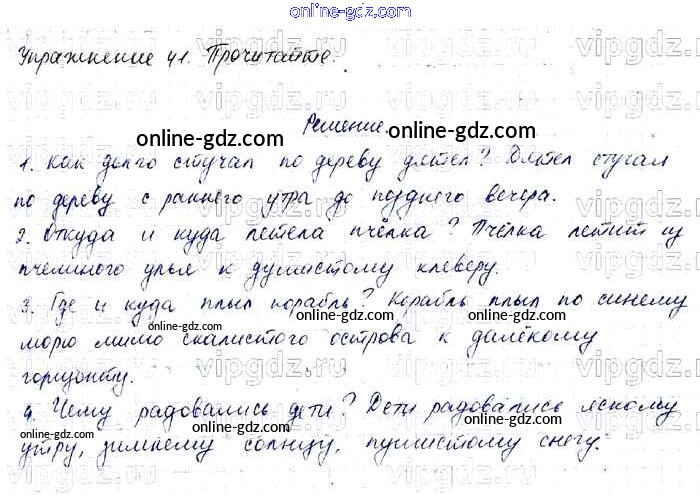 online-gdz.com
Упражнение 41. Прочитайте.
vipgdz.ru
Решение.
online-gdz.com online-gdz.com
1. Как долго стучал по дереву дятел? Дятел стучал
по дереву с раннего утра до позднего вечера.
online-gdz.com online-gdz.com
2. Откуда и куда летела пчёлка? Пчёлка летит из
пчелиного улья к душистому клеверу.
3. Где и куда плыл корабль? Корабль плыл по синему
online-gdz.com online-gdz.com
морю мимо скалистого острова к далёкому
горизонту.
4. Чему радовались дети? Дети радовались ясному
online-gdz.com online-gdz.com
утру, зимнему солнцу, пушистому снегу.